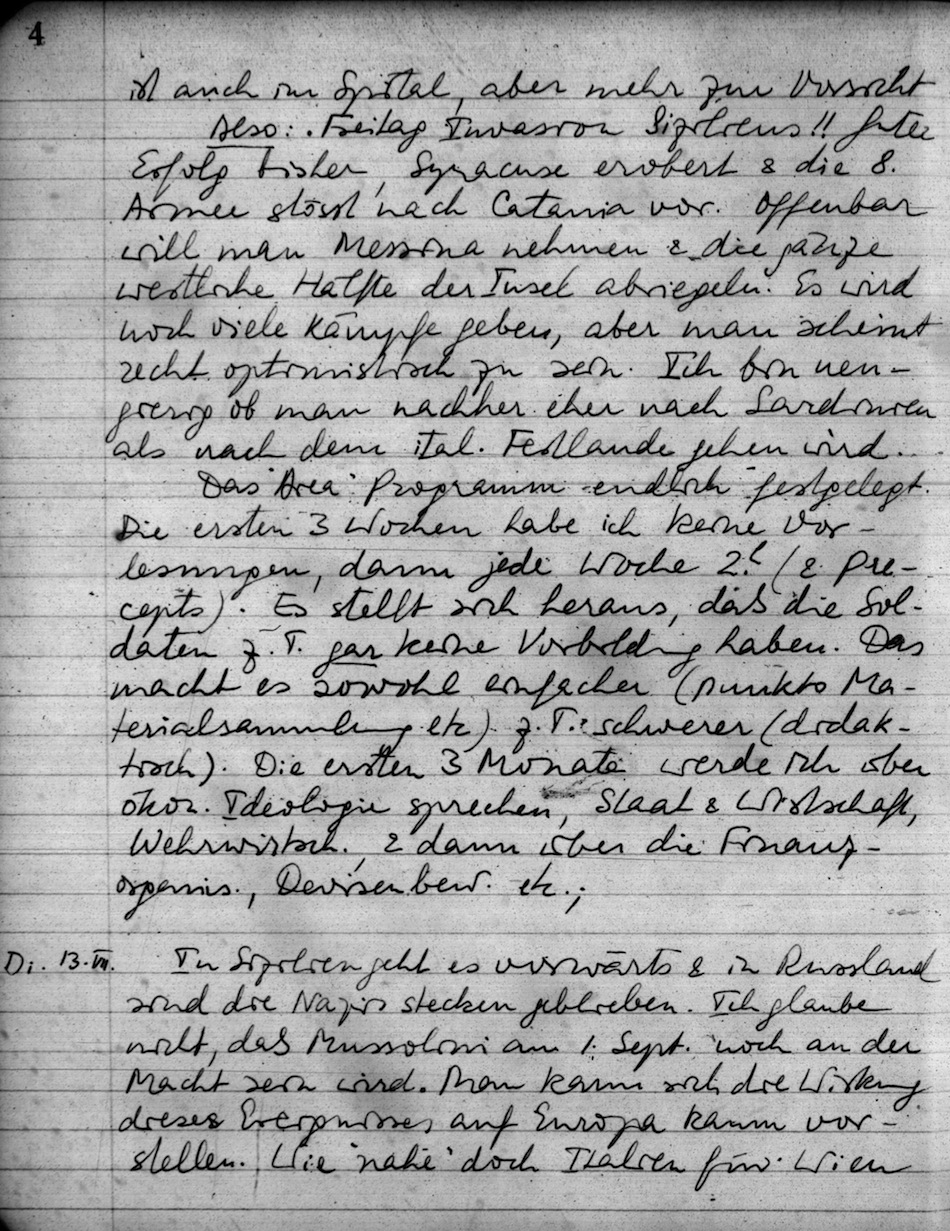 4
ist auch im Spital, aber mehr zur Vorsicht
Also: Freitag Invasion Siziliens!! Guter
Erfolg bisher, Syracuse erobert & die 8.
Armee stösst nach Catania vor. Offenbar
will man Messina nehmen & die ganze
westliche Hälfte der Insel abriegeln. Es wird
noch viele Kämpfe geben, aber man scheint
recht optimistisch zu sein. Ich bin neu-
gierig ob man nachher eher nach Sardinien
als nach dem ital. Festlande gehen wird...
Das "Area" Programm endlich festgelegt.
Die ersten 3 Wochen habe ich keine Vor-
lesungen, dann jede Woche 2! (& Pre-
cepts). Es stellt sich heraus, daß die Sol-
daten z. T. gar keine Vorbildung haben. Das
macht es sowohl einfacher (punkto Ma-
terialsammlung etc) z. T. schwerer (didak-
tisch). Die ersten 3 Monate werde ich über
ökon. Ideologie sprechen, Staat & Wirtschaft,
Wehrwirtsch., & dann über die Finanz-
organis., Devisenbew. etc.;
Di. 13. VII. In Sizilien geht es vorwärts & in Russland
sind die Nazis stecken geblieben. Ich glaube
nicht, daß Mussolini am 1. Sept. noch an der
Macht sein wird. Man kann sich die Wirkung
dieses Ereignisses auf Europa kaum vor-
stellen. Wie "nahe" doch Italien für Wien